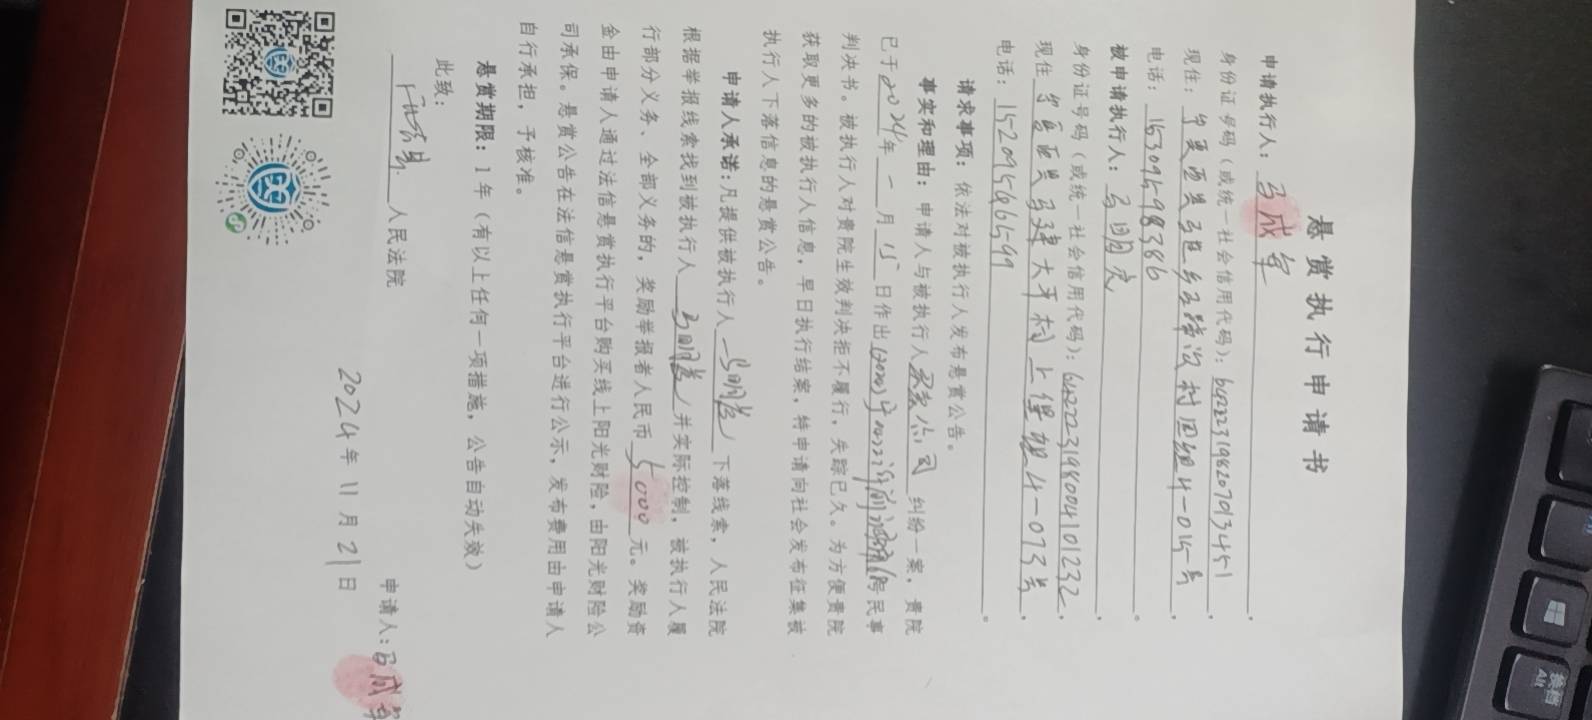 悬赏执行申请书
申请执行人：马成军
身份证号码（或统一社会信用代码）：642223198207013451.
现住：宁夏西吉县 乡 村四组4-015号.
电话：15309598386.
被申请执行人：马明 .
身份证号码（或统一社会信用代码）：642223198004101232.
现住 宁夏西吉马建大 村上 组4-073号.
电话：15209546599.
请求事项：依法对被执行人发布悬赏公告。
事实和理由：申请人与被执行人 公司 纠纷一案，贵院
已于2024年一月15日作出 民事
判决书。被执行人对贵院生效判决拒不履行，失踪已久。为方便贵院
获取更多的被执行人信息，早日执行结案，特申请向社会发布征集被
执行人下落信息的悬赏公告。
申请人承诺：凡提供被执行人 马明 下落线索，人民法院
根据举报线索找到被执行人 马明 并实际控制，被执行人履
行部分义务、全部义务的，奖励举报者人民币 5000 元。奖励资
金由申请人通过法信悬赏执行平台购买线上阳光财险，由阳光财险公
司承保。悬赏公告在法信悬赏执行平台进行公示，发布费用由申请人
自行承担，予核准。
悬赏期限：1年（有以上任何一项措施，公告自动失效）
此致：
人民法院
申请人：马成军
2024年11月21日
换档
Alt